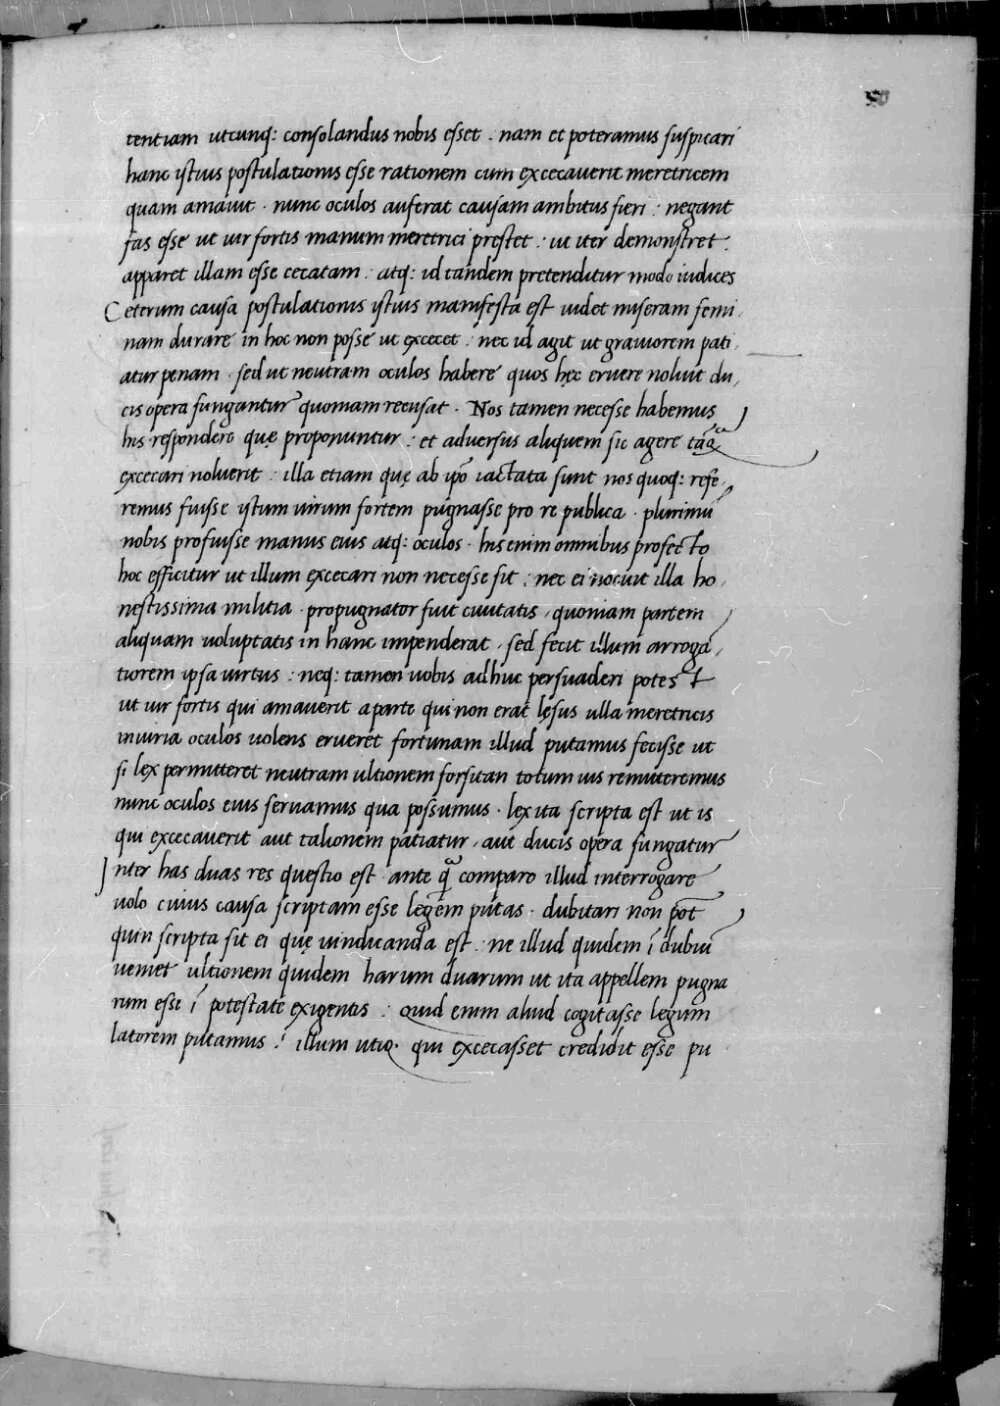 50
tentiam utcunq: consolandus nobis esset . nam et poteramus suspicari
hanc istius postulationis esse rationem cum excecauerit meretricem
quam amauit . nunc oculos auferat causam ambitus fieri : negant
fas esse ut uir fortis manum meretrici prestet . ut iter demonstret .
apparet illam esse cecatam : atq: id tandem pretenditur modo iudices
Ceterum causa postulationis istius manifesta est uidet miseram femi,
nam durare in hoc non posse ut excecet . nec id agit ut grauiorem pati,
atur penam . sed ut neutram oculos habere quos hęc eruere noluit du,
cis opera fungantur quoniam recusat . Nos tamen necesse habemus
his respondere quę proponuntur : et aduersus aliquem sic agere tāq̃
excecari noluerit : illa etiam quę ab ip̄o iactata sunt nos quoq: refe,
remus fuisse istum uirum fortem pugnasse pro re publica . plurimū
nobis profuisse manus eius atq: oculos . his enim omnibus profecto
hoc efficitur ut illum excecari non necesse sit . nec ei nocuit illa ho,
nestissima militia . propugnator fuit ciuitatis , quoniam partem
aliquam uoluptatis in hanc impenderat , sed fecit illum arrogā,
tiorem ipsa uirtus : neq: tamen uobis adhuc persuaderi potest
ut uir fortis qui amauerit a parte qui non erat lęsus ulla meretricis
iniuria oculos uolens erueret fortunam illud putamus fecisse ut
si lex permitteret neutram ultionem forsitan totum ius remitteremus
nunc oculos eius seruamus qua possumus . lex ita scripta est ut is
qui excecauerit aut talionem patiatur , aut ducis opera fungatur
Inter has duas res questio est . ante q̃ comparo illud interrogare
uolo cuius causa scriptam esse legem putas . dubitari non pōt
quin scripta sit ei quę uindicanda est . ne illud quidem ī dubiū
uemet ultionem quidem harum duarum ut ita appellem pugna
rum esse ī potestate exigentis : quid enim aliud cogitasse legum
latorem putamus ? illum utiq. qui excecasset credidit esse pu